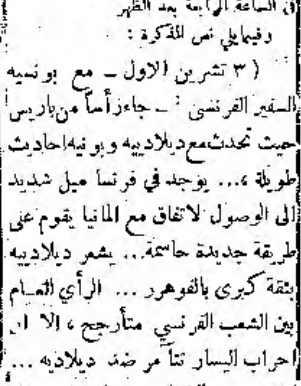 في الساعة الرابعة بعد الظهر
وفيما يلي نص المذكرة :
( ٣ تشرين الاول ــ مع بونسيه
السفير الفرنسي : ــ جاء رأساً من باريس
حيث تحدث مع ديلادييه وبونيه احاديث
طويلة ،... يوجد في فرنسا ميل شديد
الى الوصول لاتفاق مع المانيا يقوم على
طريقة جديدة حاسمة... يشعر ديلادييه
بثقة كبرى بالفوهرر ... الرأي العام
بين الشعب الفرنسي متأرجح ، الا ان
احزاب اليسار تتآمر ضد ديلادييه ...